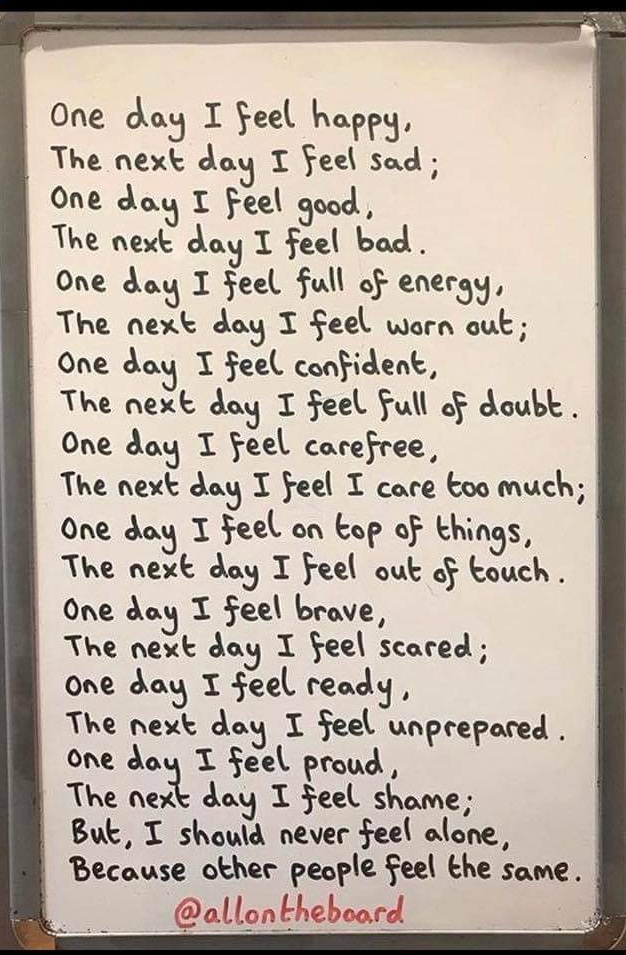 One day I feel happy,
The next day I feel sad;
One day I feel good,
The next day I feel bad.
One day I feel full of energy,
The next day I feel worn out;
One day I feel confident,
The next day I feel full of doubt.
One day I feel carefree,
The next day I feel I care too much;
One day I feel on top of things,
The next day I feel out of touch.
One day I feel brave,
The next day I feel scared;
One day I feel ready,
The next day I feel unprepared.
One day I feel proud,
The next day I feel shame;
But, I should never feel alone,
Because other people feel the same.
@allontheboard